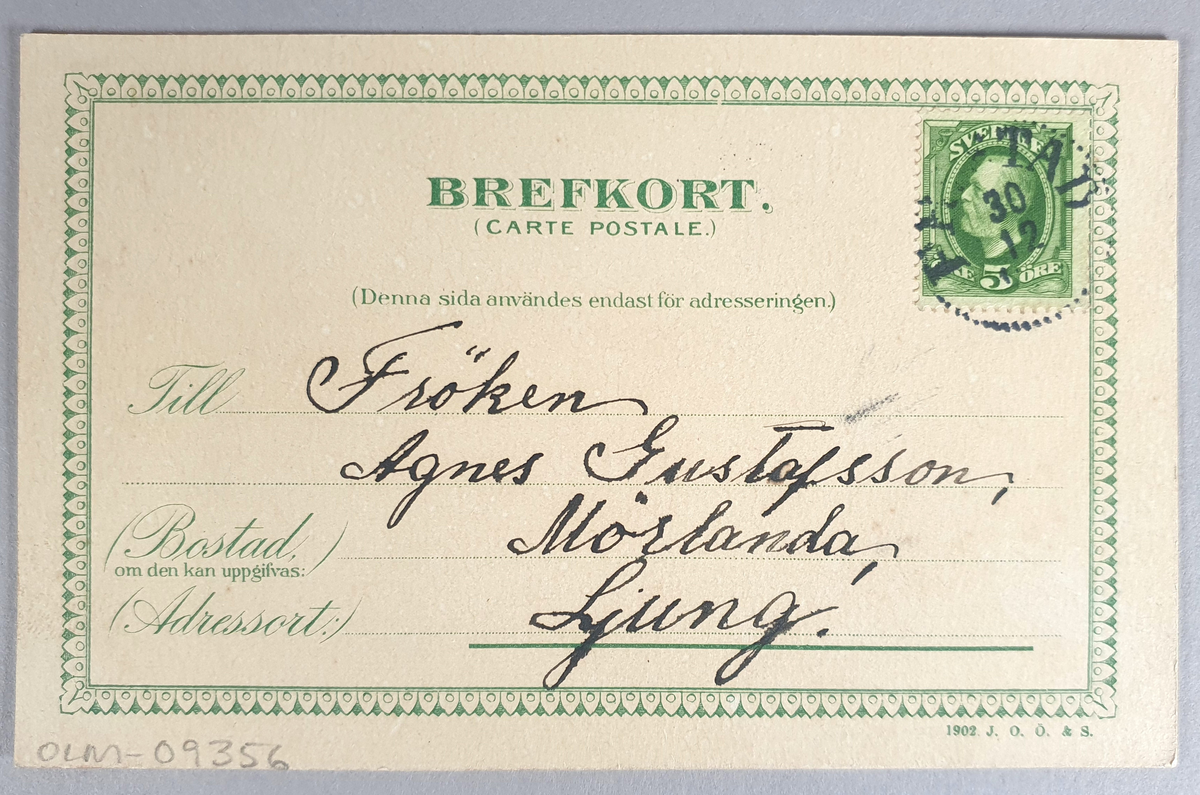 BREFKORT.
(CARTE POSTALE.)
SVERIGE
30
12
5 ÖRE
(Denna sida användes endast för adresseringen.)
Till Fröken
Agnes Gustafsson,
(Bostad,) Mörlanda,
om den kan uppgifvas:
(Adressort:) Ljung.
1902 J. O. Ö. & S.
OLM-09356